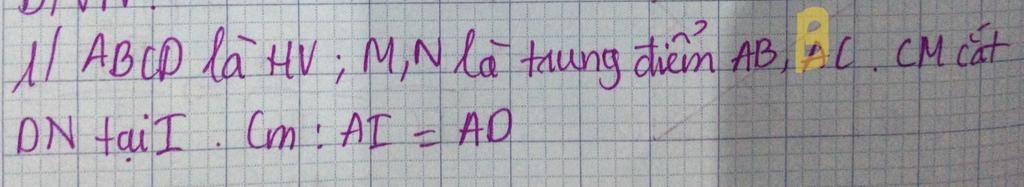 1// ABCD là HV; M,N là trung điểm AB, AC. CM cắt
DN tại I. Cm: AI = AD